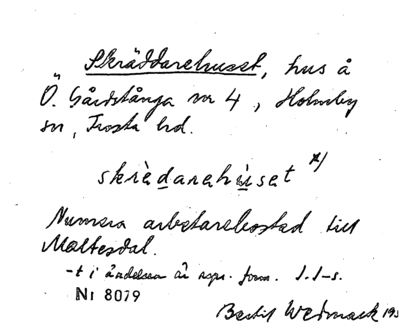 Skräddarehuset, hus å
Ö. Gårdstånga nr 4, Holmby
sn, Frosta hd.
skrèdarehùset x)
Numera arbetarebostad till
Maltesdal.
-t i ändelsen är repr. form. I.I-s.
Nr 8079
Bertil Wedmark 193